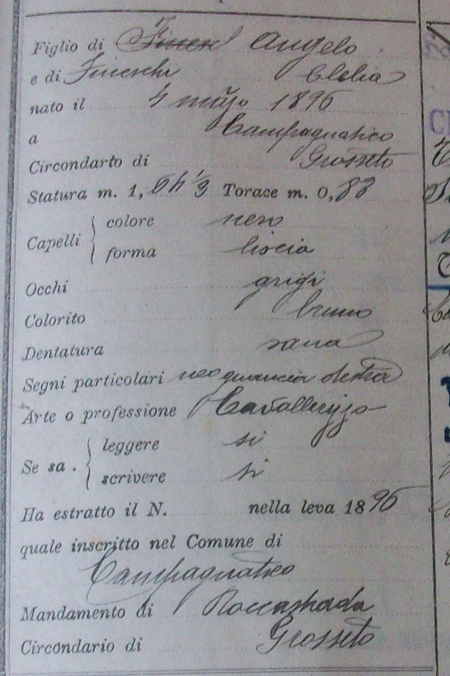 Figlio di Angelo
e di Fineschi Clelia
nato il 4 marzo 1896
a Campagnatico
Circondarto di Grosseto
Statura m. 1, Torace m. 0,83
Capelli { colore nero
forma liscia
Occhi grigi
Colorito bruno
Dentatura sana
Segni particolari neo guancia destra
Arte o professione
Se sa . { leggere si
scrivere si
Ha estratto il N. nella leva 1896
quale inscritto nel Comune di
Campagnatico
Mandamento di Roccastrada
Circondario di Grosseto